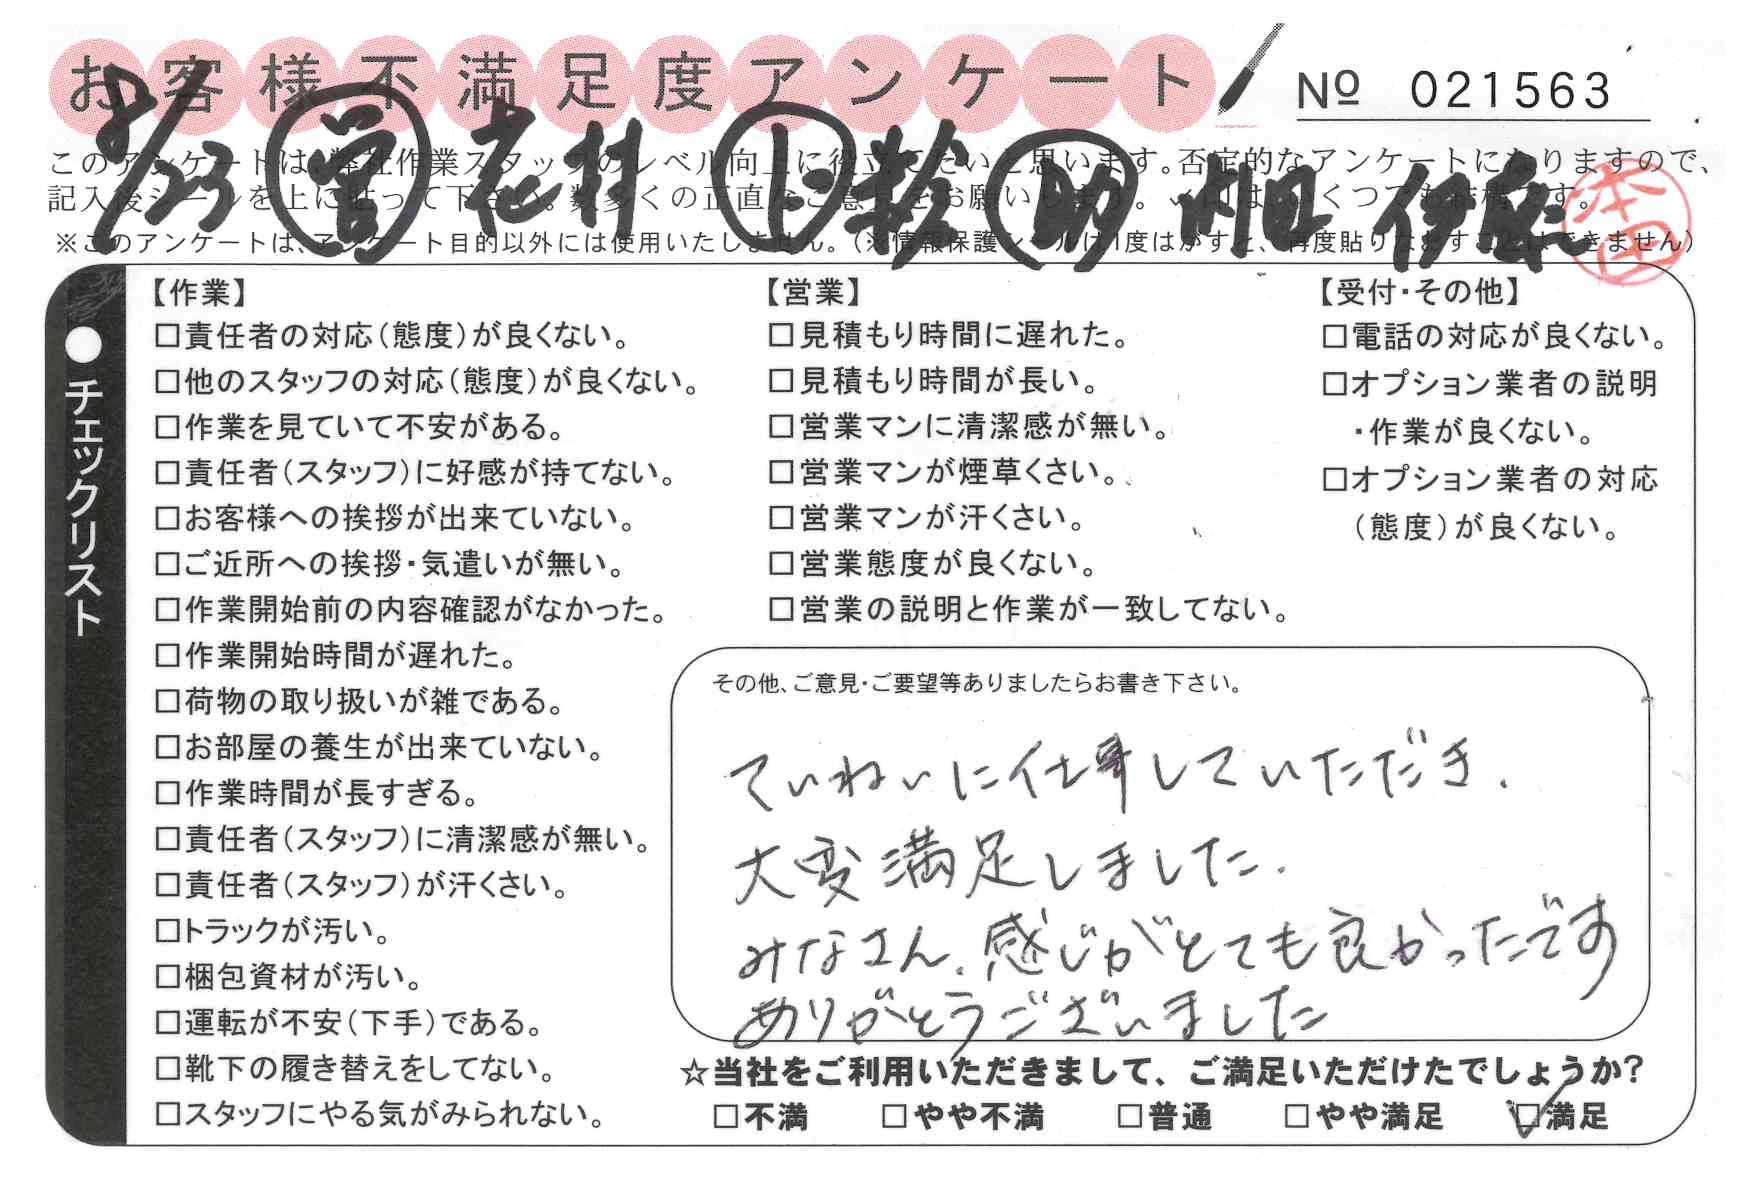 お客様不満足度アンケート
№ 021563
8/23 営 花村 ト 松 助 川田 伊藤
本田
このアンケートは、弊社作業スタッフのレベル向上に役立てたいと思います。否定的なアンケートになりますので、
記入後シールを上に貼って下さい。数多くの正直なご意見をお願いします。✓印は、いくつでも結構です。
※このアンケートは、アンケート目的以外には使用いたしません。(※情報保護シールは1度はがすと、再度貼りなおすことはできません)
●チェックリスト
【作業】
□責任者の対応(態度)が良くない。
□他のスタッフの対応(態度)が良くない。
□作業を見ていて不安がある。
□責任者(スタッフ)に好感が持てない。
□お客様への挨拶が出来ていない。
□ご近所への挨拶・気遣いが無い。
□作業開始前の内容確認がなかった。
□作業開始時間が遅れた。
□荷物の取り扱いが雑である。
□お部屋の養生が出来ていない。
□作業時間が長すぎる。
□責任者(スタッフ)に清潔感が無い。
□責任者(スタッフ)が汗くさい。
□トラックが汚い。
□梱包資材が汚い。
□運転が不安(下手)である。
□靴下の履き替えをしてない。
□スタッフにやる気がみられない。
【営業】
□見積もり時間に遅れた。
□見積もり時間が長い。
□営業マンに清潔感が無い。
□営業マンが煙草くさい。
□営業マンが汗くさい。
□営業態度が良くない。
□営業の説明と作業が一致してない。
【受付・その他】
□電話の対応が良くない。
□オプション業者の説明
・作業が良くない。
□オプション業者の対応
(態度)が良くない。
その他、ご意見・ご要望等ありましたらお書き下さい。
ていねいに仕事していただき、
大変満足しました。
みなさん、感じがとても良かったです
ありがとうございました
☆当社をご利用いただきまして、ご満足いただけたでしょうか?
□不満 □やや不満 □普通 □やや満足 ☑満足